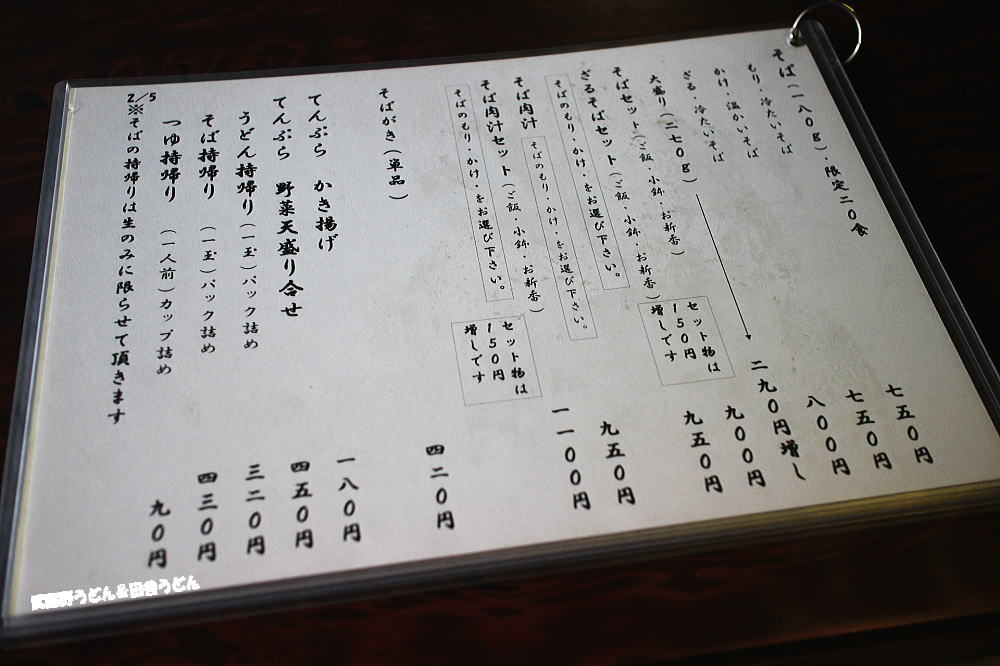 そば(一八〇g)・限定二〇食
もり・冷たいそば 七五〇円
かけ・温かいそば 七五〇円
ざる・冷たいそば 八〇〇円
大盛り(二七〇g) 二九〇円増し
そばセット(ご飯・小鉢・お新香) 九〇〇円
ざるそばセット(ご飯・小鉢・お新香) 九五〇円
そばのもり・かけ・をお選び下さい。
セット物は
150円
増しです
そば肉汁 九五〇円
そばのもり・かけ・をお選び下さい。
そば肉汁セット(ご飯・小鉢・お新香) 一一〇〇円
そばのもり・かけ・をお選び下さい。
セット物は
150円
増しです
そばがき(単品) 四二〇円
てんぷら かき揚げ 一八〇円
てんぷら 野菜天盛り合せ 四五〇円
うどん持帰り(一玉)パック詰め 三二〇円
そば持帰り(一玉)パック詰め 四三〇円
つゆ持帰り(一人前)カップ詰め 九〇円
※そばの持帰りは生のみに限らせて頂きます
2/5
武蔵野うどん&田舎うどん